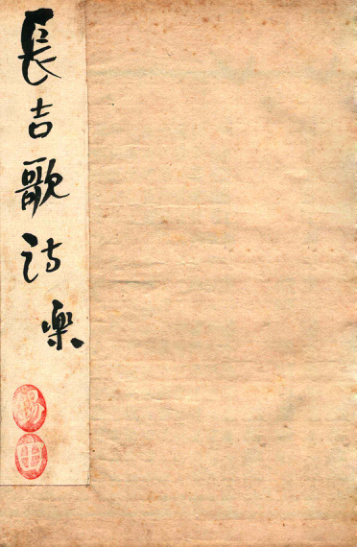 長吉歌詩樂